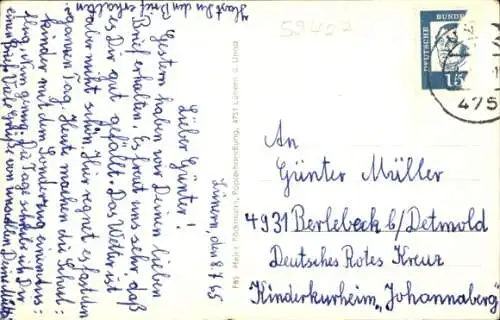 Lünern, den 8.7.65
Lieber Günter!
Gestern haben wir Deinen lieben
Brief erhalten. Es freut uns sehr, daß
es Dir gut gefällt. Das Wetter ist
aber nicht schön. Hier regnet es fast den
ganzen Tag. Heute machen die Schul=
kinder mit dem Sonderzug einen
Nun genug. Die Tage schreib ich Dir
einen Brief. Viele Grüße von uns allen Deine Mutti
Hast Du den Brief erhalten
F85 Meike Böckmann, Papierhandlung, 4751 Lünern ü. Unna
59422
DEUTSCHE BUNDES
15
475
An
Günter Müller
4931 Berlebeck b/Detmold
Deutsches Rotes Kreuz
Kinderkurheim „Johannaberg"